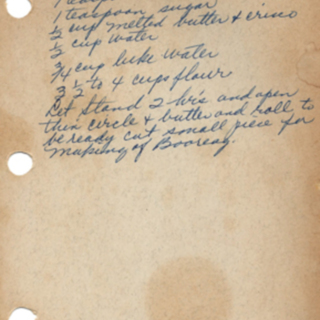 1 teaspoon sugar
1/2 cup melted butter & crisco
1/2 cup water
3/4 cup luke water
3 1/2 to 4 cups flour
Let stand 2 hr's and open
thin circle & butter and roll to
be ready cut small piece for
making of Booreag.